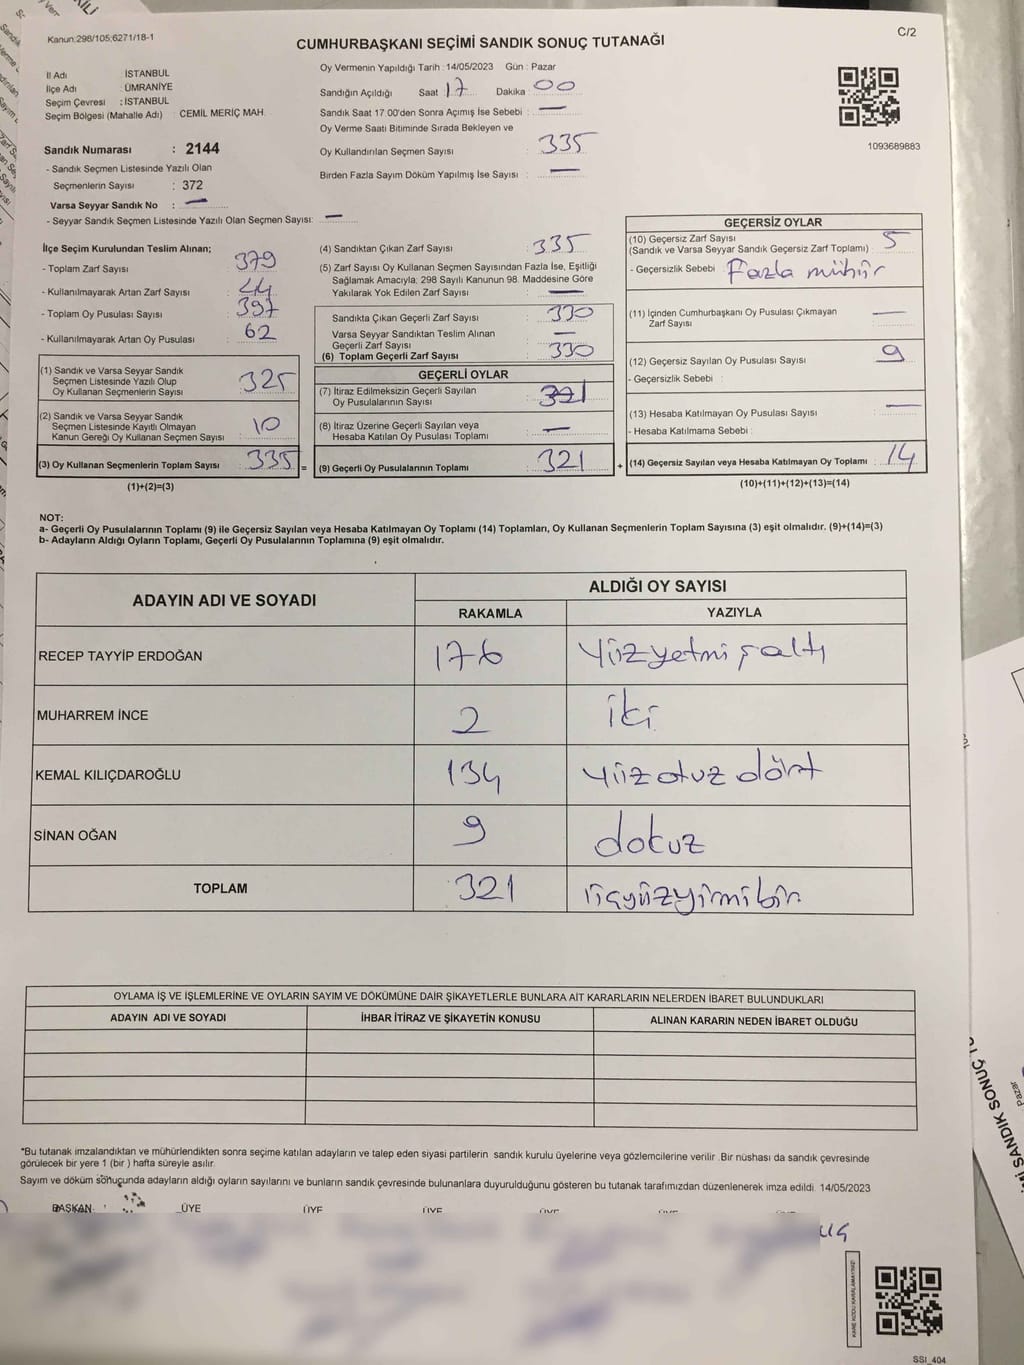 Kanun:298/105;6271/18-1
C/2
CUMHURBAŞKANI SEÇİMİ SANDIK SONUÇ TUTANAĞI
İl Adı : İSTANBUL
İlçe Adı : ÜMRANİYE
Seçim Çevresi : İSTANBUL
Seçim Bölgesi (Mahalle Adı) : CEMİL MERİÇ MAH.
Sandık Numarası : 2144
- Sandık Seçmen Listesinde Yazılı Olan
Seçmenlerin Sayısı : 372
Varsa Seyyar Sandık No : —
- Seyyar Sandık Seçmen Listesinde Yazılı Olan Seçmen Sayısı: —
Oy Vermenin Yapıldığı Tarih : 14/05/2023 Gün : Pazar
Sandığın Açıldığı Saat 17 Dakika : 00
Sandık Saat 17.00'den Sonra Açımış İse Sebebi : —
Oy Verme Saati Bitiminde Sırada Bekleyen ve
Oy Kullandırılan Seçmen Sayısı : 335
Birden Fazla Sayım Döküm Yapılmış İse Sayısı : —
1093689883
İlçe Seçim Kurulundan Teslim Alınan;
- Toplam Zarf Sayısı : 379
- Kullanılmayarak Artan Zarf Sayısı : 44
- Toplam Oy Pusulası Sayısı : 397
- Kullanılmayarak Artan Oy Pusulası : 62
(1) Sandık ve Varsa Seyyar Sandık
Seçmen Listesinde Yazılı Olup
Oy Kullanan Seçmenlerin Sayısı : 325
(2) Sandık ve Varsa Seyyar Sandık
Seçmen Listesinde Kayıtlı Olmayan
Kanun Gereği Oy Kullanan Seçmen Sayısı : 10
(3) Oy Kullanan Seçmenlerin Toplam Sayısı : 335 =
(1)+(2)=(3)
(4) Sandıktan Çıkan Zarf Sayısı : 335
(5) Zarf Sayısı Oy Kullanan Seçmen Sayısından Fazla İse, Eşitliği
Sağlamak Amacıyla; 298 Sayılı Kanunun 98. Maddesine Göre
Yakılarak Yok Edilen Zarf Sayısı : —
Sandıkta Çıkan Geçerli Zarf Sayısı : 330
Varsa Seyyar Sandıktan Teslim Alınan
Geçerli Zarf Sayısı : —
(6) Toplam Geçerli Zarf Sayısı : 330
GEÇERLİ OYLAR
(7) İtiraz Edilmeksizin Geçerli Sayılan
Oy Pusulalarının Sayısı : 321
(8) İtiraz Üzerine Geçerli Sayılan veya
Hesaba Katılan Oy Pusulası Toplamı : —
(9) Geçerli Oy Pusulalarının Toplamı : 321 +
GEÇERSİZ OYLAR
(10) Geçersiz Zarf Sayısı
(Sandık ve Varsa Seyyar Sandık Geçersiz Zarf Toplamı) : 5
- Geçersizlik Sebebi : Fazla mühür
(11) İçinden Cumhurbaşkanı Oy Pusulası Çıkmayan
Zarf Sayısı : —
(12) Geçersiz Sayılan Oy Pusulası Sayısı : 9
- Geçersizlik Sebebi :
(13) Hesaba Katılmayan Oy Pusulası Sayısı : —
- Hesaba Katılmama Sebebi :
(14) Geçersiz Sayılan veya Hesaba Katılmayan Oy Toplamı : 14
(10)+(11)+(12)+(13)=(14)
NOT:
a- Geçerli Oy Pusulalarının Toplamı (9) ile Geçersiz Sayılan veya Hesaba Katılmayan Oy Toplamı (14) Toplamları, Oy Kullanan Seçmenlerin Toplam Sayısına (3) eşit olmalıdır. (9)+(14)=(3)
b- Adayların Aldığı Oyların Toplamı, Geçerli Oy Pusulalarının Toplamına (9) eşit olmalıdır.
ADAYIN ADI VE SOYADI ALDIĞI OY SAYISI
RAKAMLA YAZIYLA
RECEP TAYYİP ERDOĞAN 176 Yüzyetmişaltı
MUHARREM İNCE 2 iki
KEMAL KILIÇDAROĞLU 134 yüzotuzdört
SİNAN OĞAN 9 dokuz
TOPLAM 321 üçyüzyirmibir
OYLAMA İŞ VE İŞLEMLERİNE VE OYLARIN SAYIM VE DÖKÜMÜNE DAİR ŞİKAYETLERLE BUNLARA AİT KARARLARIN NELERDEN İBARET BULUNDUKLARI
ADAYIN ADI VE SOYADI İHBAR İTİRAZ VE ŞİKAYETİN KONUSU ALINAN KARARIN NEDEN İBARET OLDUĞU
*Bu tutanak imzalandıktan ve mühürlendikten sonra seçime katılan adayların ve talep eden siyasi partilerin sandık kurulu üyelerine veya gözlemcilerine verilir. Bir nüshası da sandık çevresinde
görülecek bir yere 1 (bir) hafta süreyle asılır.
Sayım ve döküm sonucunda adayların aldığı oyların sayılarını ve bunların sandık çevresinde bulunanlara duyurulduğunu gösteren bu tutanak tarafımızdan düzenlenerek imza edildi. 14/05/2023
BAŞKAN ÜYE ÜYE ÜYE ÜYE ÜYE
KARE KODU KARALAMAYINIZ!
SSI_404
SANDIK SONUÇ
Pazar